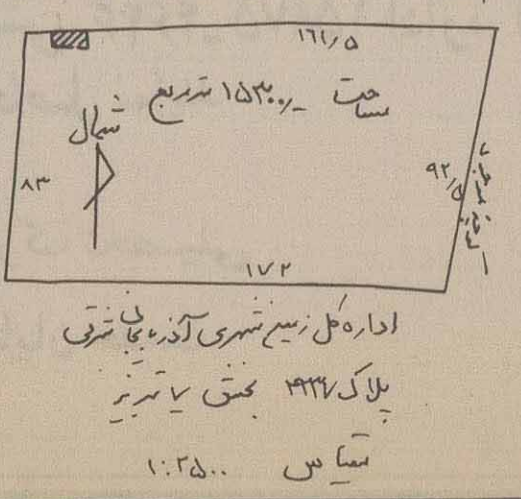 ۱۶۱/۵
مساحت ۱۵۳۰۰/- متر مربع
شمال
۸۳
۹۲/۵
۱۷۲
اداره کل زمین شهری آذربایجان شرقی
پلاک ۴۹۳۶/ بخش ۷ تبریز
مقیاس ۱:۲۵۰۰